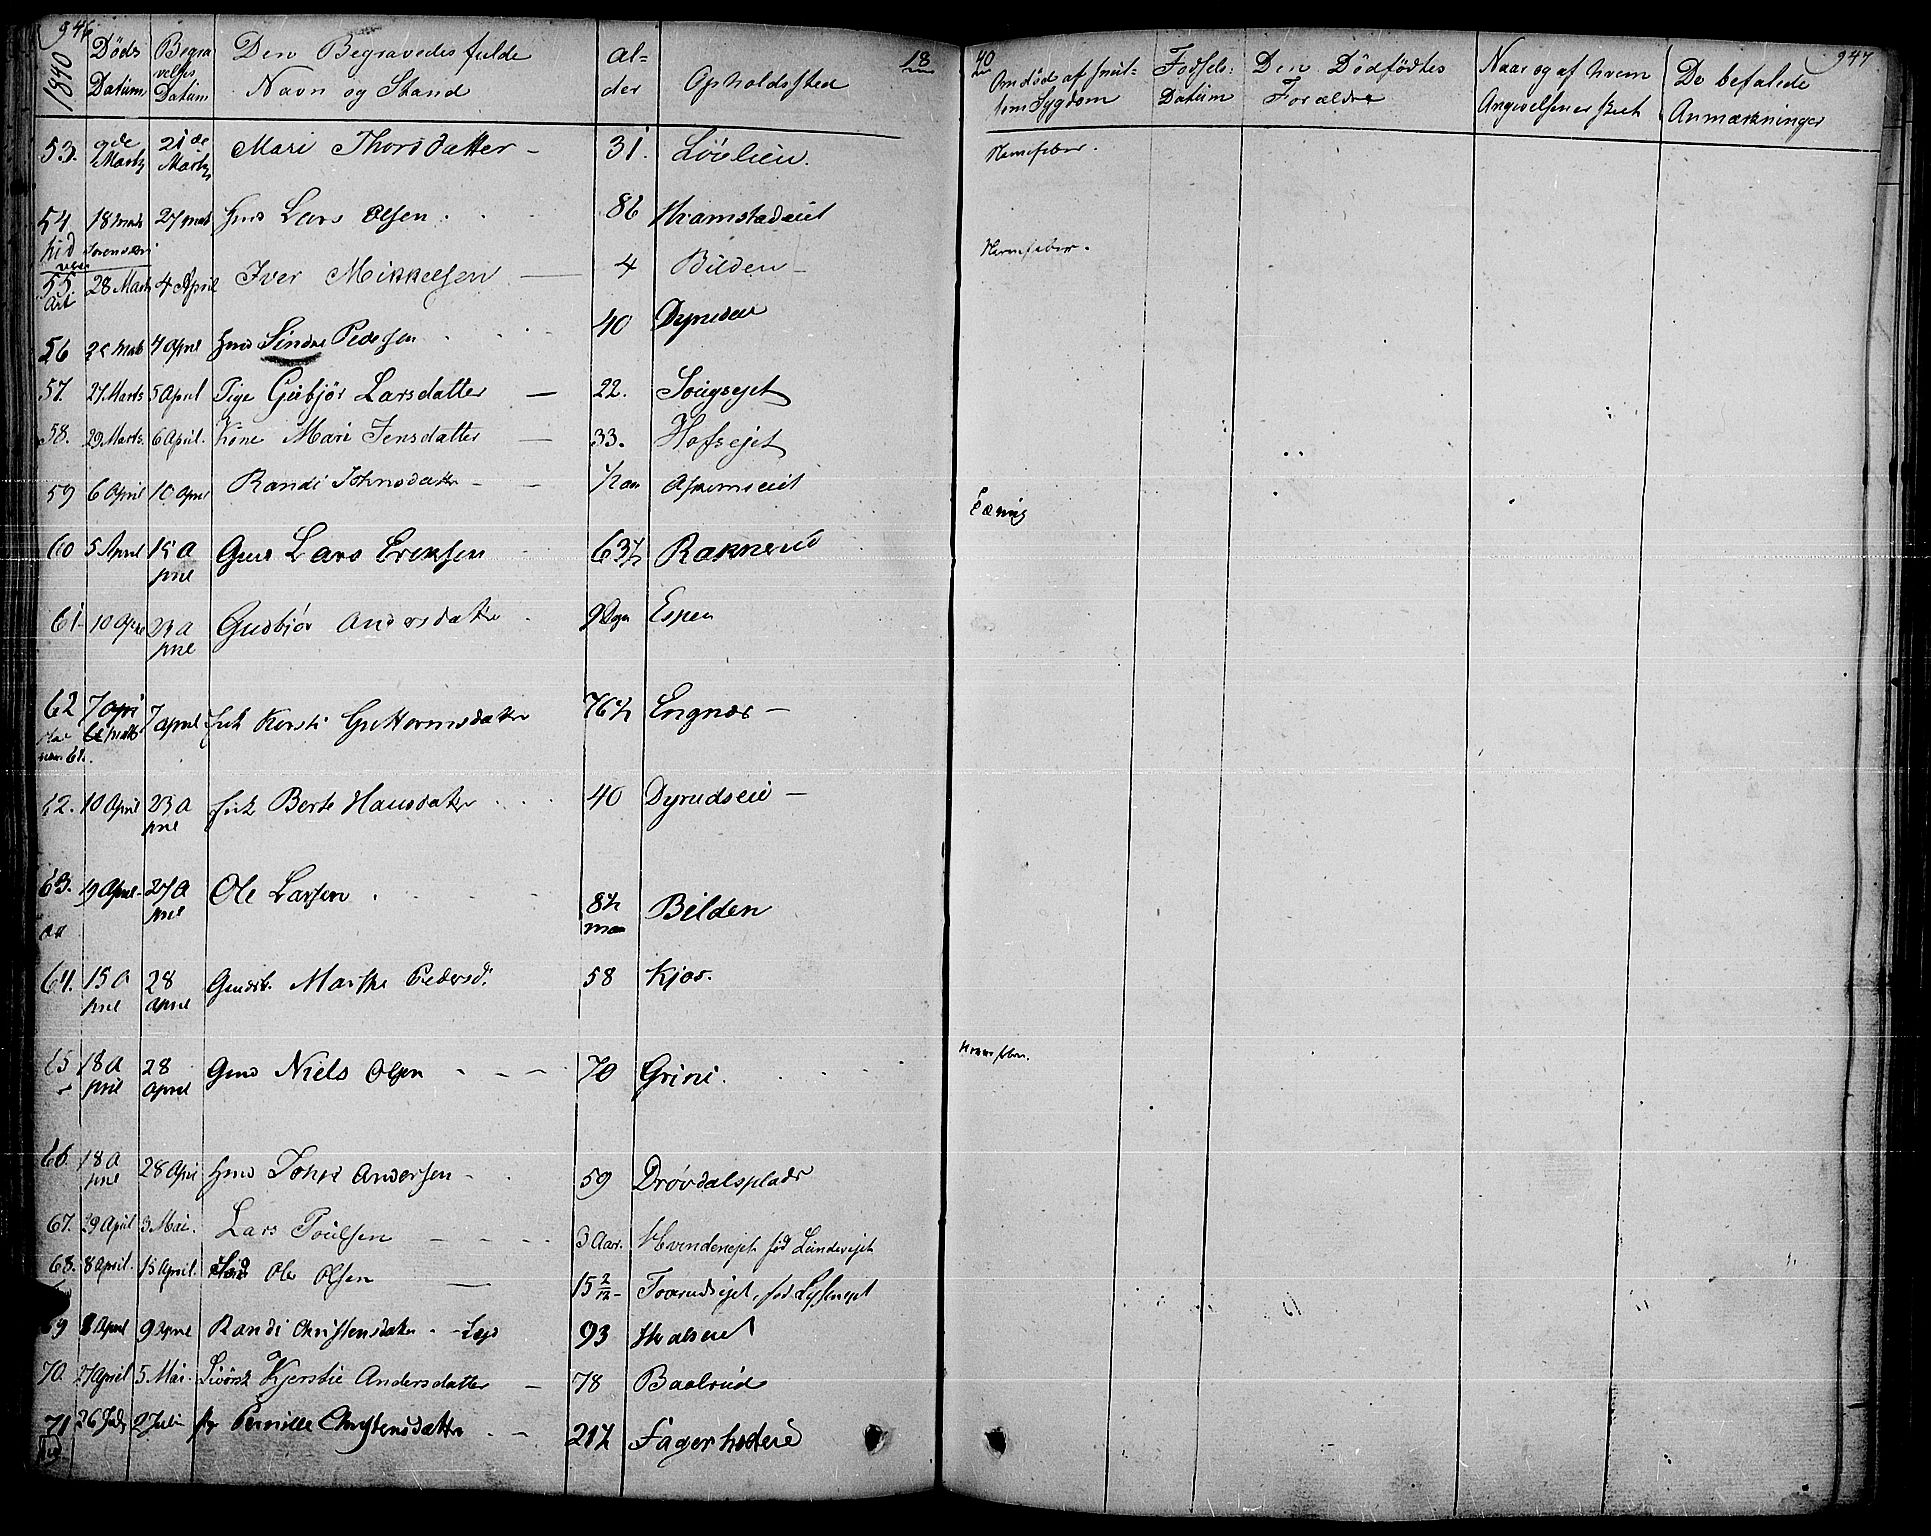 946
1840 Døds Datum Begravelses Datum Den Begravedes fulde Navn og Stand Alder Opholdssted 18
53. 9de Marts 21de Marts Mari Thorsdatter - 31. Løelien.
54 18 Marts 27 Marts Gmd Lars Olsen 86 Hramstadeiet
55 28 Marts 4 April Iver Mikkelsen 4 Bilden -
56 Marts 4 April Gmd Sindre Pedersen 40 Dyrudeie
57. 27. Marts 5 April Pige Gubjør Larsdatter - 22. Sougsejet
58. 29 Marts. 6 April. Kone Mari Jensdatter - 33. Hofsejet
59 6 April 10 April Randi Johnsdatter - - 1/2 aar
60 5 April 15 April Gmd Lars Eriksen 63½ Raknerud
61. 10 April 23 April Gudbiør Andersdatter 9 Dage Espen
62 7 April 7 April Enk Kersti Guttormsdatter 76½ Engnæs -
62. 10 April 23 April Enk Berte Hansdatter 40 Dyrudseie -
63. 19 April 27 April Ole Larsen 8½ maan Bilden
64. 15 April 28 April Marthe Pedersd. 58 Kjos.
65 18 April 28 April Gmd Niels Olsen - - - 70 Grini.
66. 18 April 28 April Gmd Johns Andersen - 59 Drøvdalsplads
67. 29 April 3 Mai. Lars Poulsen - - - - 3 Aar. Hvindenejet fød Lundsejet
68. 8 April. 15 April. Ole Olsen - 15 2/12 - Foarudsejet, fød Lyseneiet
69 8 April 9 April Randi Christensdatter - Lægd 93 Hvalseiet
70. 27 April 5 Mai. Kjerstie Andersdatter - 78 Baalrud
71 26 Juni 2 Juli Pernille Christensdatter - - 21½ Fagerholteie
40 947
Om død af smitsom Sygdom Fødsels-Datum Den Dødfødtes Forældre Naar og af hvem Angivelsen er skeet De befalede Anmærkninger
Nervefeber.
Nervefeber.
Tæring
Nervefeber.